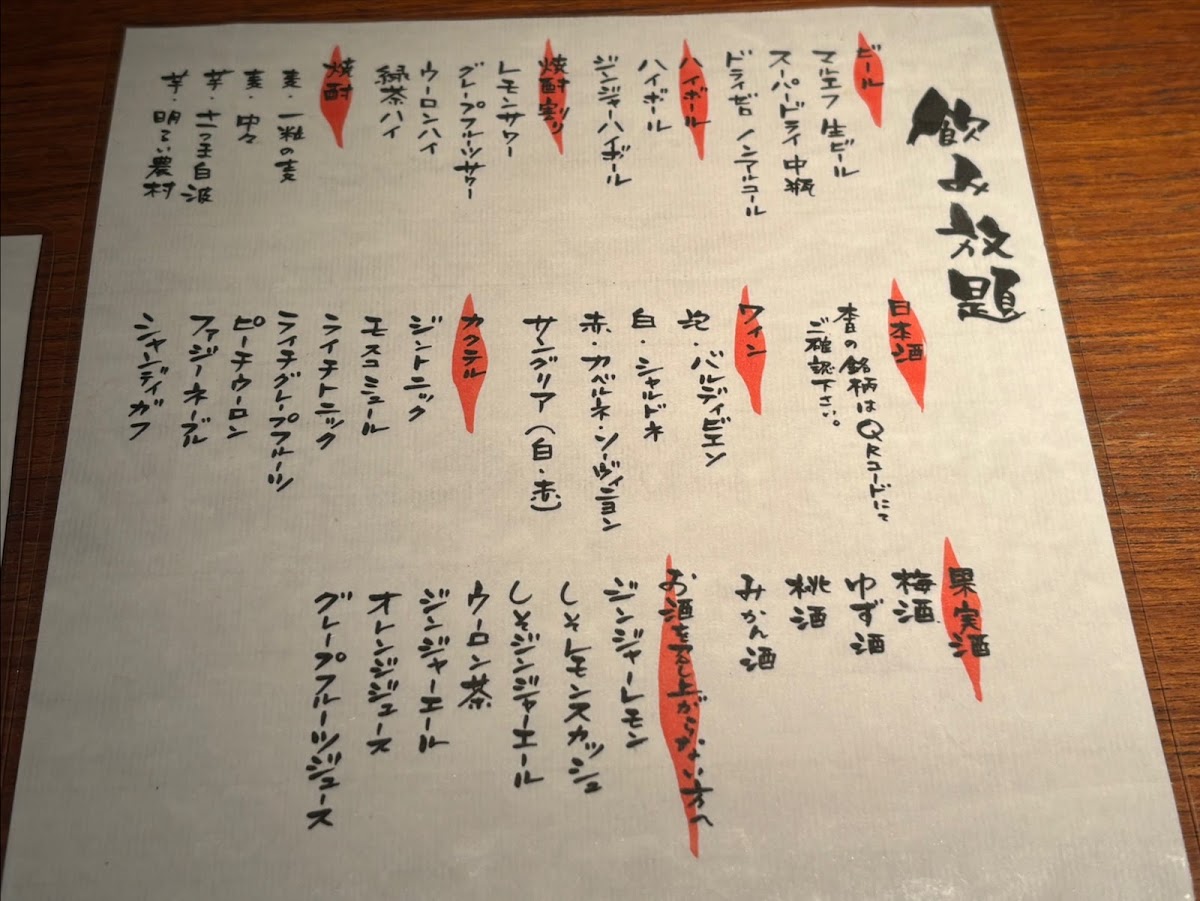 飲み放題
ビール
マルエフ 生ビール
スーパードライ 中瓶
ドライゼロ ノンアルコール
ハイボール
ハイボール
ジンジャーハイボール
焼酎割り
レモンサワー
グレープフルーツサワー
ウーロンハイ
緑茶ハイ
焼酎
麦・一粒の麦
麦・中々
芋・さつま白波
芋・明るい農村
日本酒
本日の銘柄はQRコードにて
ご確認下さい。
ワイン
泡・バルディビエソ
白・シャルドネ
赤・カベルネ・ソーヴィニヨン
サングリア(白・赤)
カクテル
ジントニック
モスコミュール
ライチトニック
ライチグレープフルーツ
ピーチウーロン
ファジーネーブル
シャンディガフ
果実酒
梅酒
ゆず酒
桃酒
みかん酒
お酒を召し上がらない方へ
ジンジャーレモン
しそレモンスカッシュ
しそジンジャーエール
ウーロン茶
ジンジャーエール
オレンジジュース
グレープフルーツジュース